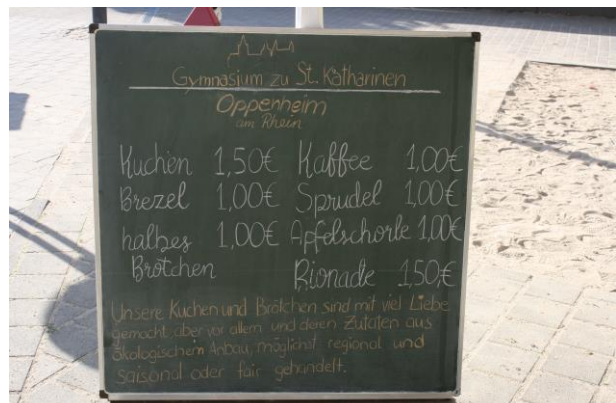 Gymnasium zu St. Katharinen
Oppenheim
am Rhein
Kuchen 1,50€ Kaffee 1,00€
Brezel 1,00€ Sprudel 1,00€
halbes 1,00€ Apfelschorle 1,00€
Brötchen Bionade 1,50€
Unsere Kuchen und Brötchen sind mit viel Liebe
gemacht, aber vor allem und deren Zutaten aus
ökologischem Anbau, möglichst regional und
saisonal oder fair gehandelt.